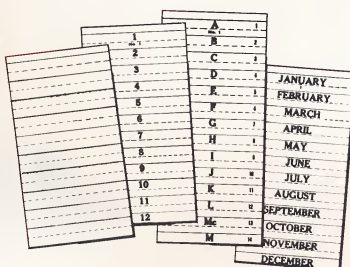 1
No. 1
2
3
4
5
6
7
8
9
10
11
12
A 1
No. 1
B 2
C 3
D 4
E 5
F 6
G 7
H 8
I 9
J 10
K 11
L 12
Mc 13
M 14
JANUARY
FEBRUARY
MARCH
APRIL
MAY
JUNE
JULY
AUGUST
SEPTEMBER
OCTOBER
NOVEMBER
DECEMBER